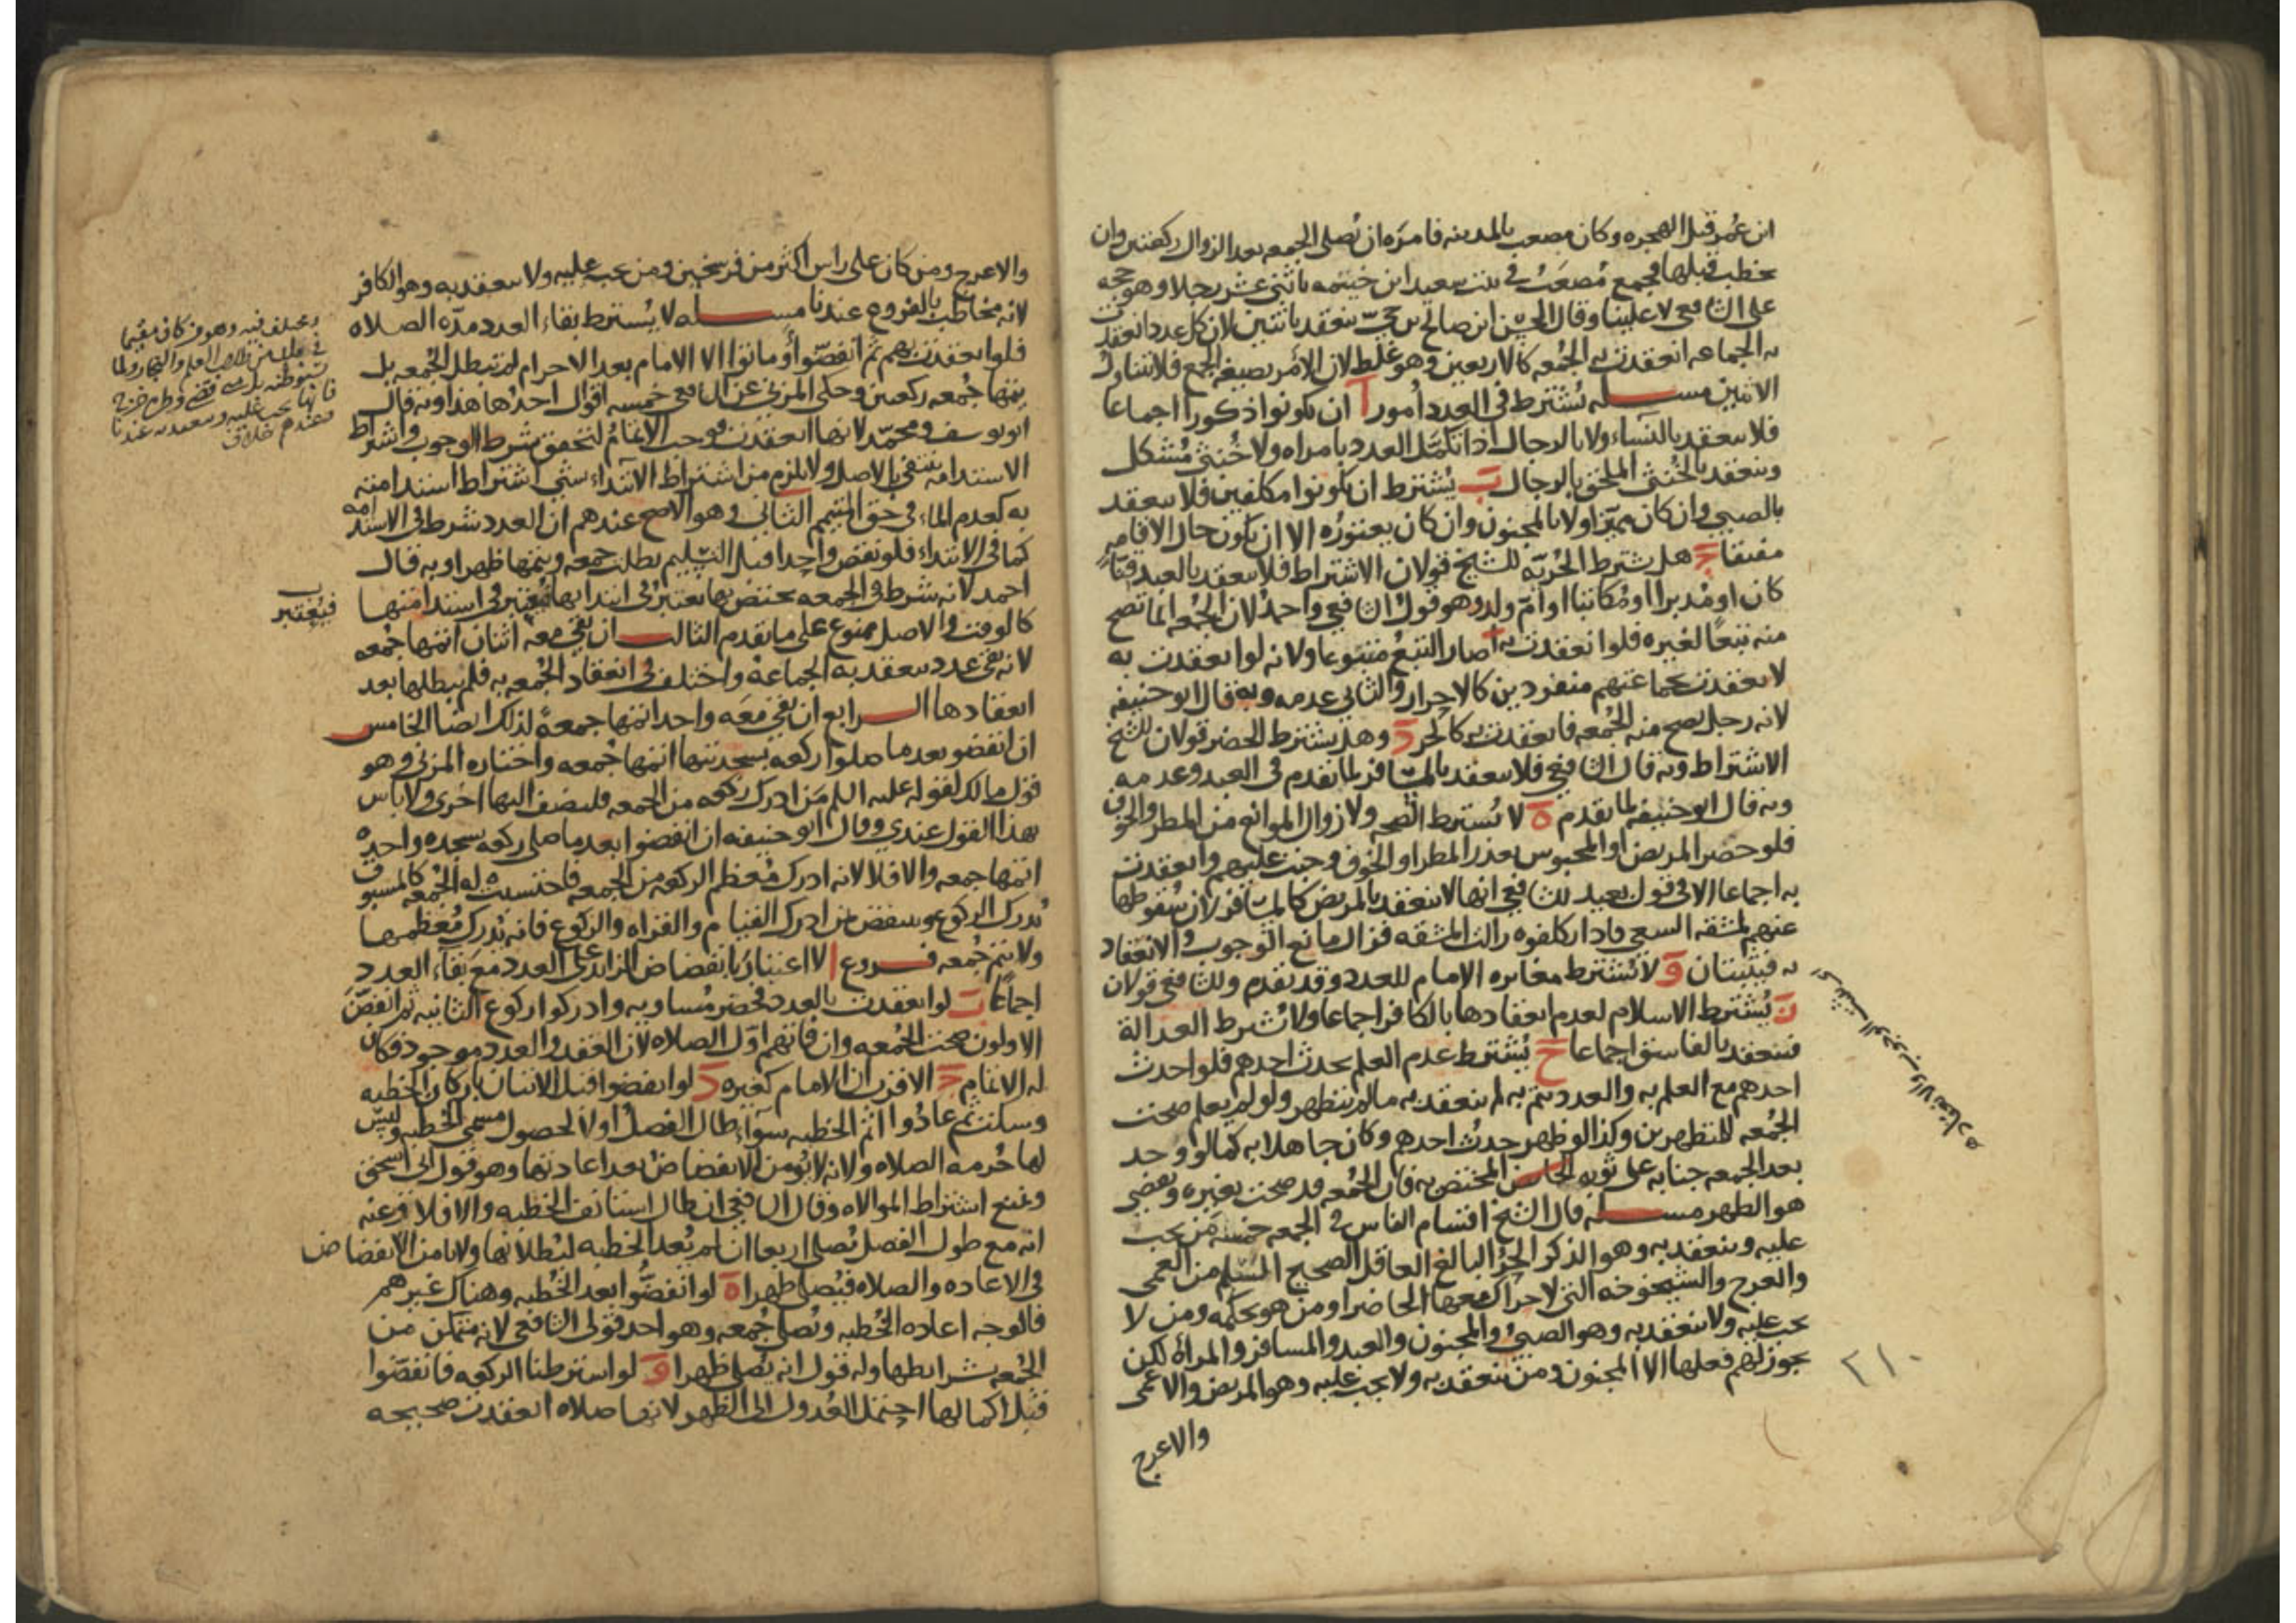 ابن عُمر قبل الهجره وكان مصعب بالمدينه فامره ان تُصلى الجمعه بعد الزوال ركعتين وان
يخطب قبلها فجمع مُصعَبٌ في بيت سعيد ابن خيثمه باثنى عشر رجلا وهو حجه
على الشافعي لا علينا وقال الحسن ابن صالح بن حىّ ينعقد باثنين لان كل عدد انعقدت
به الجماعه انعقدت به الجُمعه كالاربعين وهو غلط لان الامر بصيغه الجمع فلا يتناول
الاثنين مسله يُشترط في العدد اُمور ا ان يكونوا ذكورا اجماعا
فلا ينعقد بالنساء ولا بالرجال اذا تكمّل العدد بامراه ولا خُنثى مُشكل
وينعقد بالخنثى الملحق بالرجال ب يُشترط ان يكونوا مكلفين فلا ينعقد
بالصبي وان كان مميّزا ولا بالمجنون وان كان يعتوره الا ان يكون حال الاقامه
مفيقا ج هل يشترط الحُريّه للشيخ قولان الاشتراط فلا ينعقد بالعبد قنّا
كان او مُدبرا او مُكاتبا او امّ ولد وهو قول الشافعي واحمد لان الجُمعه انما تصح
منه تبعًا لغيره فلو انعقدت به صار التبع متبوعا ولانه لو انعقدت به
لانعقدت بجماعتهم منفردين كالاحرار والثاني عدمه وبه قال ابو حنيفه
لانه رجل يصح منه الجُمعه فانعقدت به كالحر د وهل يشترط الحضر قولان للشيخ
الاشتراط وبه قال الشافعي فلا ينعقد بالمسافر لما تقدم في العبد وعدمه
وبه قال ابو حنيفه لما تقدم ه لا تُشترط الصحه ولا زوال الموانع من المطر والخوف
فلو حضر المريض او المحبوس بعذر المطر او الخوف وجبت عليهم وانعقدت
به اجماعا الا في قول بعيد للشافعي انها لا ينعقد بالمريض كالمسافر لان سُقوطها
عنهم لمشقه السعي فاذا تكلفوه زالت المشقه فزال مانع الوجوب والانعقاد
به فيثبتان و لا يُشترط مغايره الامام للعدد وقد تقدم وللشافعي قولان
ز يُشترط الاسلام لعدم انعقادها بالكافر اجماعا ولا تُشرط العدالة
فينعقد بالفاسق اجماعا ح يُشترط عدم العلم بحدث احدهم فلو احدث
احدهم مع العلم به والعدد يتم به لم ينعقد به ما لم يتطهر ولو لم يعلم صحت
الجُمعه للمتطهرين وكذا لو ظهر حدث احدهم وكان جاهلا به كما لو وجد
بعد الجمعه جنابه على ثوبه المختص به فان الجُمعه قد صحت بغيره ويقضي
هو الظهر مسله قال الشيخ اقسام الناس في الجمعه خمسه من يجب
عليه وينعقد به وهو الذكر الحُرّ البالغ العاقل الصحيح المُسلم من العمى
والعرج والشيخوخه التي لا حراك معها الحاضر او من هو بحكمه ومن لا
يجب عليه ولا ينعقد به وهو الصبيُ والمجنون والعبد والمسافر والمراة لكن
يجوز لهم فعلها الا المجنون ومن ينعقد به ولا يجب عليه وهو المريض والاعمى
والاعرج
٢١٠
والاعرج ومن كان على راس اكثر من فرسخين ومن يجب عليه ولا ينعقد به وهو الكافر
لانه مخاطب بالفروع عندنا مسله لا يُشترط بقاء العدد مدّه الصلاه
فلو انعقدت بهم ثم انفضّوا او ماتوا الا الامام بعد الاحرام لم تبطل الجُمعه بل
يتمها جُمعه ركعتين وحكى المزني عن الشافعي خمسه اقوال احدُها هذا وبه قال
ابو يوسف ومحمّد لانها انعقدت فوجب الاتمامُ لتحقق شرط الوجوب واشتراط
الاستدامه منتفى بالاصل ولا يلزم من اشتراط الابتداء بشي اشتراط استدامته
به كعدم الماء في حق المتيمم الثاني وهو الاصح عندهم ان العدد شرط في الاستدامه
كما في الابتداء فلو نقص واحد قبل التسليم بطلت جمعه ويتمها ظهرا وبه قال
احمد لانه شرط في الجمعه يختص بها يعتبر في ابتدائها فيعتبر في استدامتها
كالوقت والاصل ممنوع على ما تقدم الثالث ان بقي معه اثنان اتمها جُمعه
لانه بقي عدد ينعقد به الجماعة واختلف في انعقاد الجُمعه به فلم يبطلها بعد
انعقادها الرابع ان بقي معه واحد اتمها جمعةً لذلك ايضا الخامس
ان انفضوا بعد ما صلوا ركعه بسجدتيها اتمها جُمعه واختاره المزني وهو
قول مالك لقوله عليه السلم من ادرك ركعه من الجمعه فليضف اليها اخرى ولا باس
بهذا القول عندي وقال ابو حنيفه ان انفضوا بعد ما صلى ركعه بسجده واحده
اتمها جمعه والا فلا لانه ادرك مُعظم الركعه من الجمعه فاحتسبت له الجُمعه كالمسبوق
يُدرك الركوع وينتقض بمن ادرك القيام والقراه والركوع فانه يُدرك مُعظمها
ولا يتم جُمعه فروع ا لا اعتبار بانفضاض الزائد على العدد مع بقاء العدد
اجماعًا ب لو انعقدت بالعدد فحضر مُساويه وادركوا ركوع الثانيه ثم انفضّ
الاولون صحت الجُمعه وان فاتهم اوّل الصلاه لان العقد والعدد موجود فكان
له الاتمام ج الاقرب ان الامام كغيره د لو انفضوا قبل الاتيان باركان الخطبه
وسكت ثم عادُوا اتم الخطبه سواء طال الفصل او لا لحصول مسمى الخطبه وليس
لها حُرمه الصلاه ولانه لا يُومن الانفضاضُ بعد اعادتها وهو قول ابى اسحق
ونمنع اشتراط الموالاه وقال الشافعي ان طال استانف الخطبه والا فلا وعنه
انه مع طول الفصل يُصلى اربعا ان لم يُعد الخطبه لبُطلانها ولا يامن الانفضاض
في الاعاده والصلاه فيُصلى ظهرا ه لو انفضّوا بعد الخُطبه وهناك غيرهم
فالوجه اعاده الخُطبه ويُصلى جُمعه وهو احد قولى الشافعي لانه متمكن من
الجُمعه بشرائطها وله قول انه يُصلى ظهرا و لو اشترطنا الركعه فانفضّوا
قبل اكمالها احتمل العُدول الى الظهر لانها صلاه انعقدت صحيحه
فيُعتبر